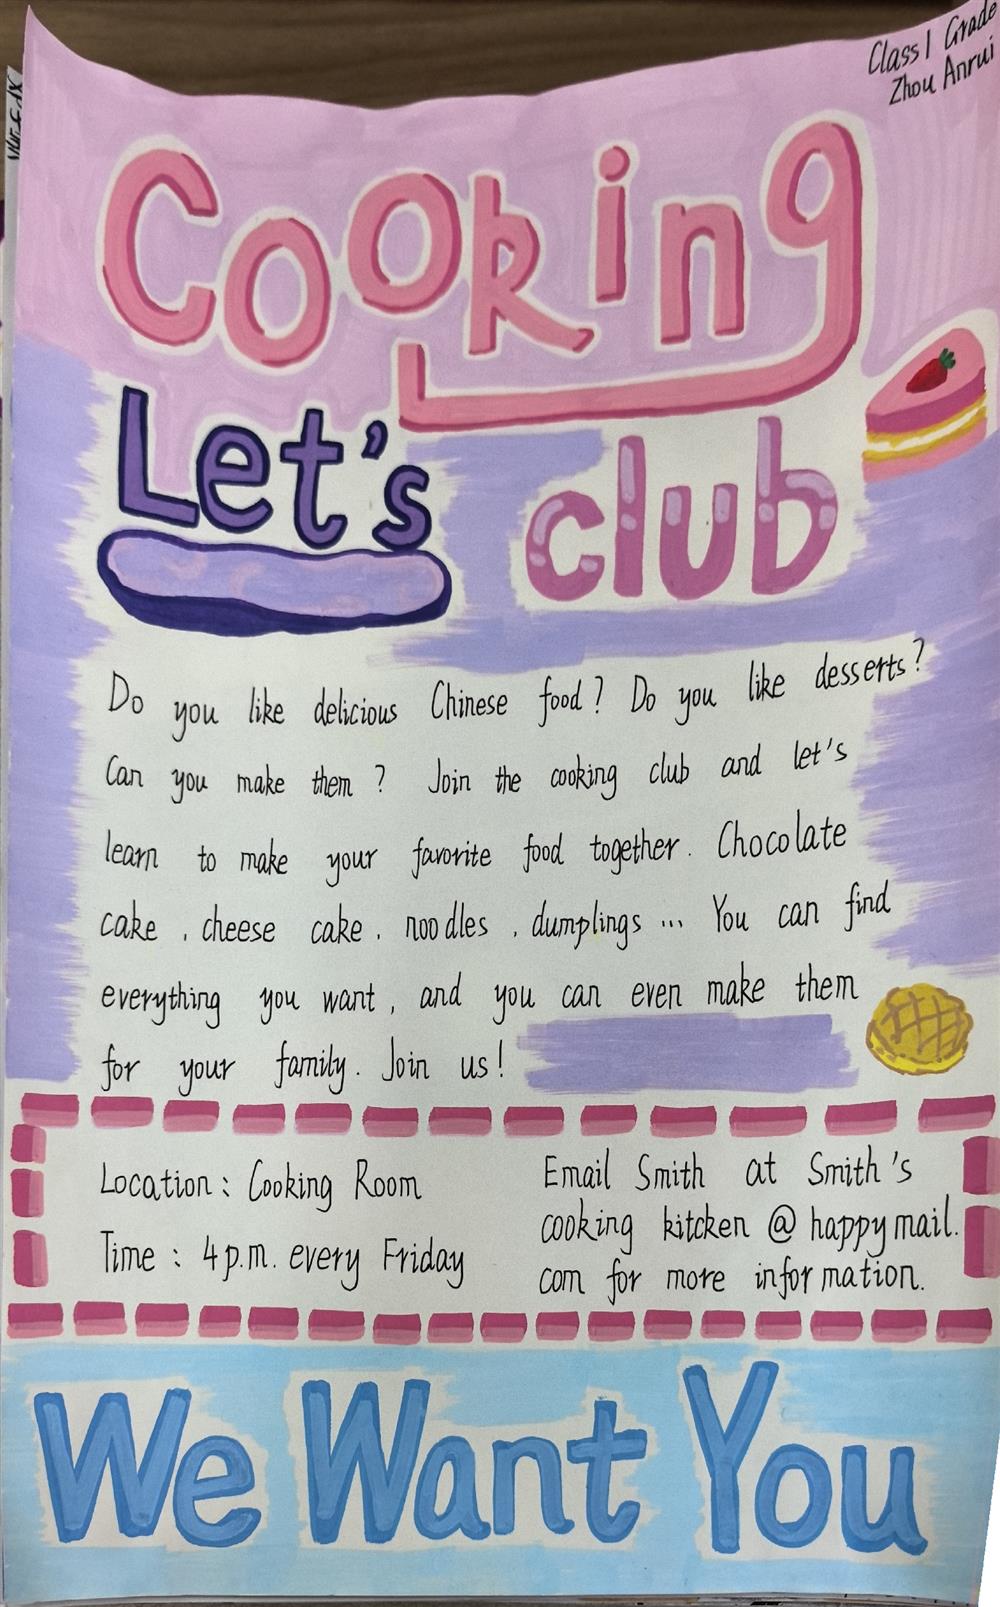 Class 1 Grade
Zhou Anrui
Cooking
Let's
club
Do you like delicious Chinese food? Do you like desserts?
Can you make them? Join the cooking club and let's
learn to make your favorite food together. Chocolate
cake, cheese cake, noodles, dumplings... You can find
everything you want, and you can even make them
for your family. Join us!
Location: Cooking Room
Time: 4 p.m. every Friday
Email Smith at Smith's
cooking kitcken @ happy mail.
com for more information.
We Want You